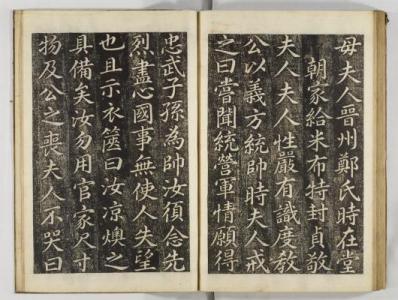 毋夫人晉州鄭氏時在堂
朝家給米布特封貞敬
夫人夫人性嚴有識度教
公以義方統帥時夫人戒
之曰嘗聞統營軍情願得
忠武子孫為帥汝須念先
烈盡心國事無使人失望
也且示衣篋曰汝凉燠之
具備矣汝勿用官家尺寸
物及公之喪夫人不哭曰